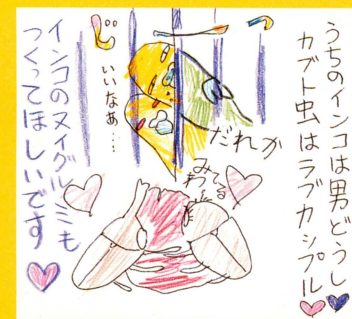 うちのインコは男どうし
カブト虫はラブカップル
だれか
じ
いいなあ…
みてるわ〜
インコのヌイグルミも
つくってほしいです